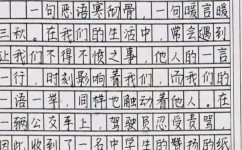 一句恶语寒彻骨，一句暖言暖
三秋。在我们的生活中，常会遇到
让我们不得不愤之事，他人的一言
一行，时刻影响着我们，而我们的
一语一举，同样也触动着他人。在
一辆公交车上，驾驶员忍受责骂，
因此，收到了一名中学生的赞扬的纸